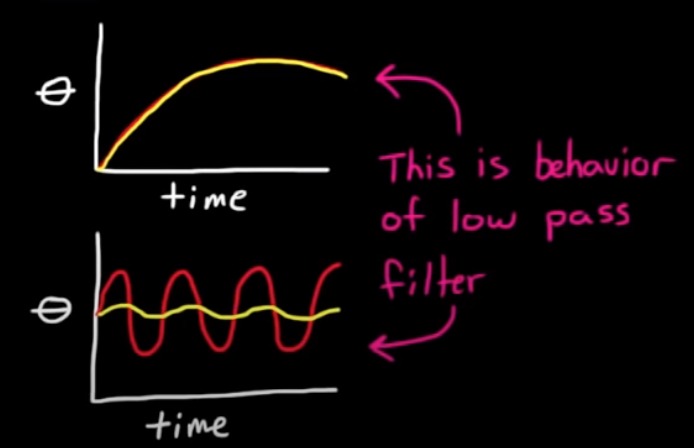 θ
time
This is behavior
of low pass
filter
θ
time